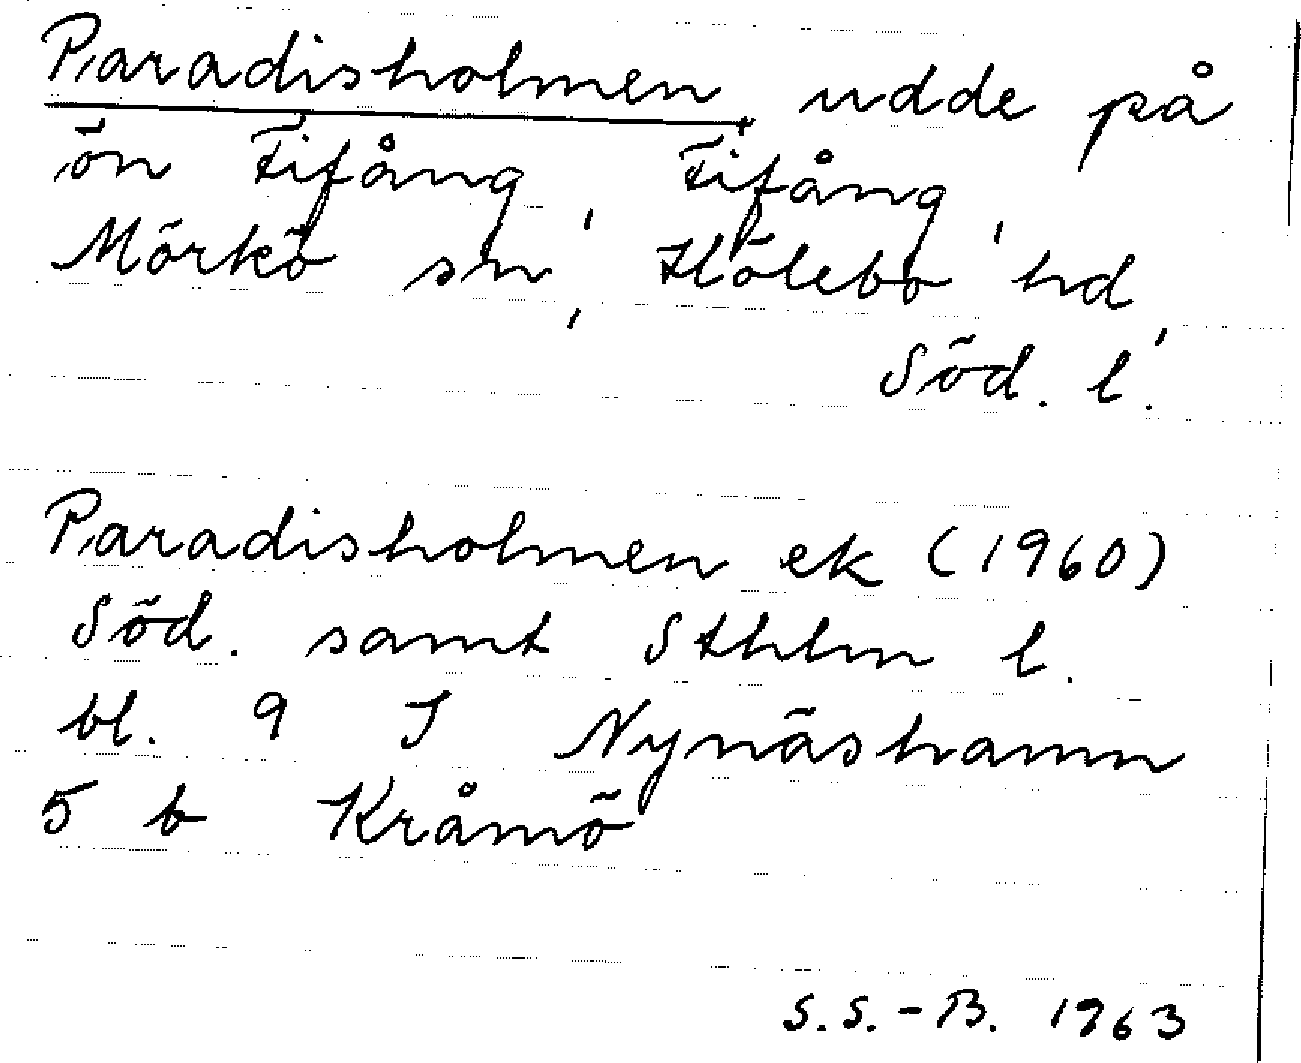 Paradisholmen, udde på
ön Fifång, Fifång,
Mörkö sn, Hölebo hd,
Söd. l.
Paradisholmen ek (1960)
Söd. samt Sthlm l.
bl. 9 I Nynäshamn
5 b Kråmö
S.S.-B. 1963